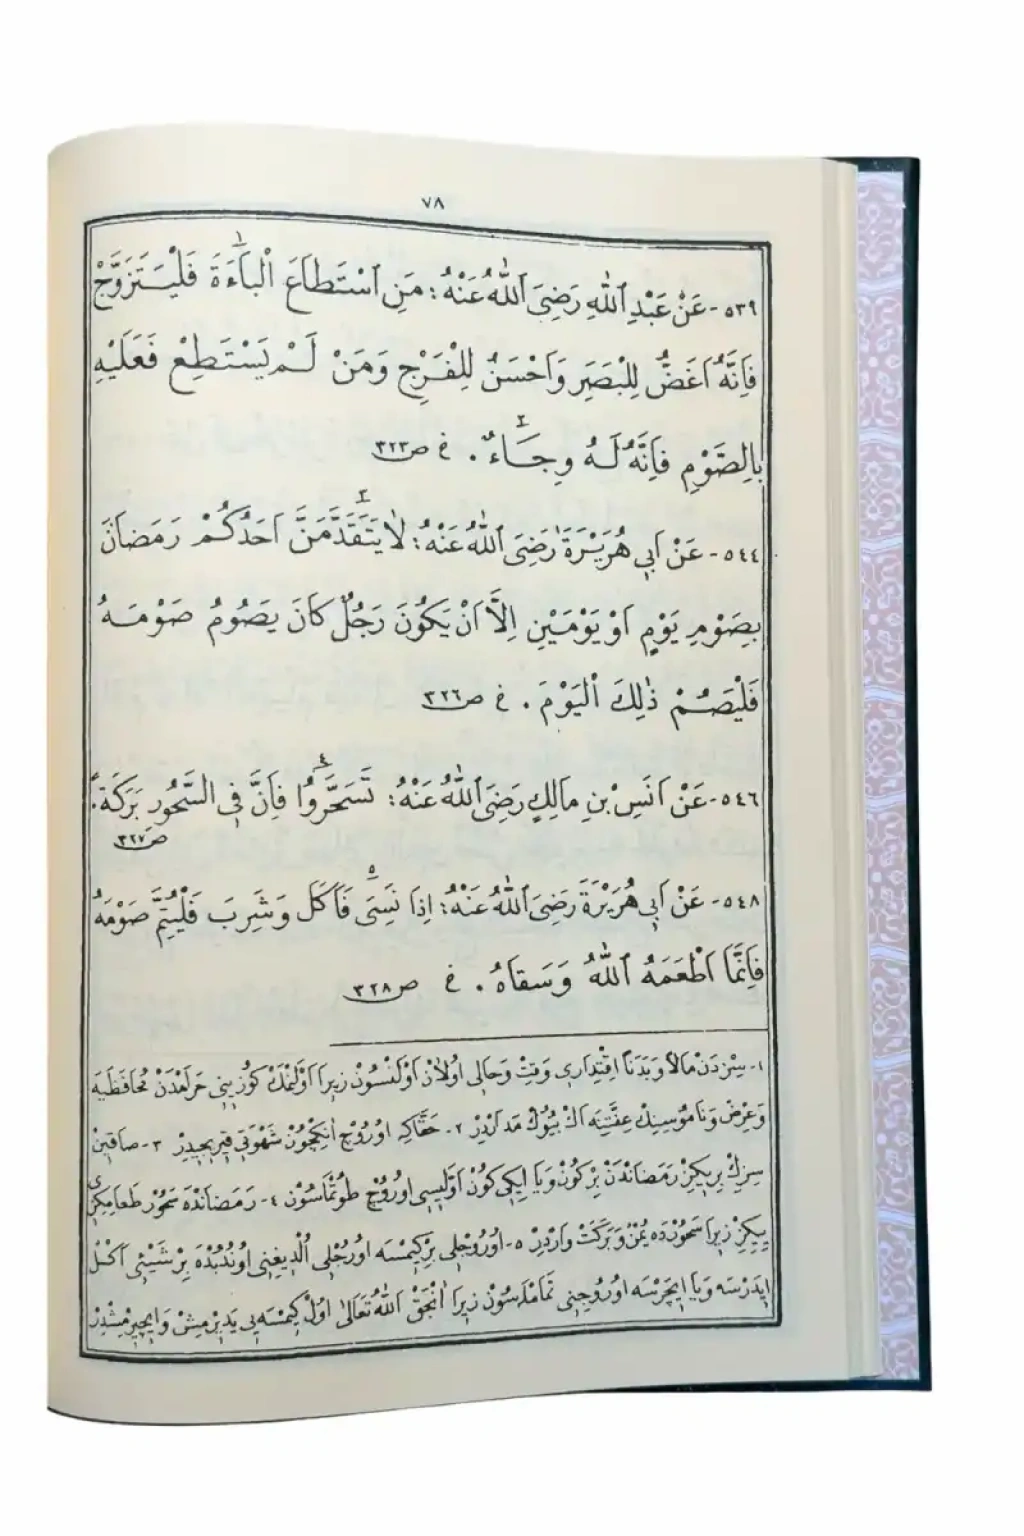 ٧٨
٥٣٩- عَنْ عَبْدِ اللّٰهِ رَضِىَ اللّٰهُ عَنْهُ: مَنِ اسْتَطَاعَ الْبَٓاءَةَ١ فَلْيَتَزَوَّجْ
فَاِنَّهُ اَغَضُّ لِلْبَصَرِ وَاَحْسَنُ لِلْفَرْجِ وَمَنْ لَمْ يَسْتَطِعْ فَعَلَيْهِ
بِالصَّوْمِ فَاِنَّهُ لَهُ وِجَٓاءٌ٢. خ ص٣٢٣
٥٤٤- عَنْ اَبِى هُرَيْرَةَ رَضِىَ اللّٰهُ عَنْهُ: لَا يَتَقَدَّمَنَّ٣ اَحَدُكُمْ رَمَضَانَ
بِصَوْمِ يَوْمٍ اَوْ يَوْمَيْنِ اِلَّا اَنْ يَكُونَ رَجُلٌ كَانَ يَصُومُ صَوْمَهُ
فَلْيَصُمْ ذٰلِكَ الْيَوْمَ. خ ص٣٢٦
٥٤٦- عَنْ اَنَسِ بْنِ مَالِكٍ رَضِىَ اللّٰهُ عَنْهُ: تَسَحَّرُوا٤ فَاِنَّ فِى السَّحُورِ بَرَكَةً.
ص٣٢٧
٥٤٨- عَنْ اَبِى هُرَيْرَةَ رَضِىَ اللّٰهُ عَنْهُ: اِذَا نَسِىَ٥ فَاَكَلَ وَشَرِبَ فَلْيُتِمَّ صَوْمَهُ
فَاِنَّمَا اَطْعَمَهُ اللّٰهُ وَسَقَاهُ. خ ص٣٢٨
١- سِزْدَنْ مَالًا وَبَدَنًا اِقْتِدَارِى وَقْتْ وَحَالِى اُولَانْ اَوْلَنْسُونْ زِيرَا اَوْلَنْمَكْ كُوزِينِى حَرَامْدَنْ مُحَافَظَيَه
وَعِرْضْ وَنَامُوسِينِكْ عِفَّتِنَه اَكْ بُيُوكْ مَدَارْدِرْ ٢- حَقَّاكِه اُورُوجْ اَنِكْچُونْ شَهْوَتِى قِيرِيجِيدِرْ ٣- صَاقِينْ
سِزِكْ بِرِيكِزْ رَمَضَانْدَنْ بِرْ كُونْ وَيَا اِيكِى كُونْ اَوَّلِيسِى اُورُوجْ طُوتْمَاسُونْ ٤- رَمَضَانْدَه سَحُورْ طَعَامِكِزِى
يِيكِزْ زِيرَا سَحُورْدَه يُمْنْ وَبَرَكَتْ وَارْدِرْ ٥- اُورُوجْلِى بِرْ كِيمْسَه اُورُجْلِى اُلْدِيغِنِى اُونُدُبْدَه بِرْ شَيْئِى اَكْلْ
اِيدَرْسَه وَيَا اِيچَرْسَه اُورُوجِنِى تَمَامْلَاسُونْ زِيرَا اَنْجَقْ اَللّٰهُ تَعَالٰى اُولْ كِيمْسَه يِى يَدِيرْمِشْ وَاِيچِيرْمِشْدِرْ